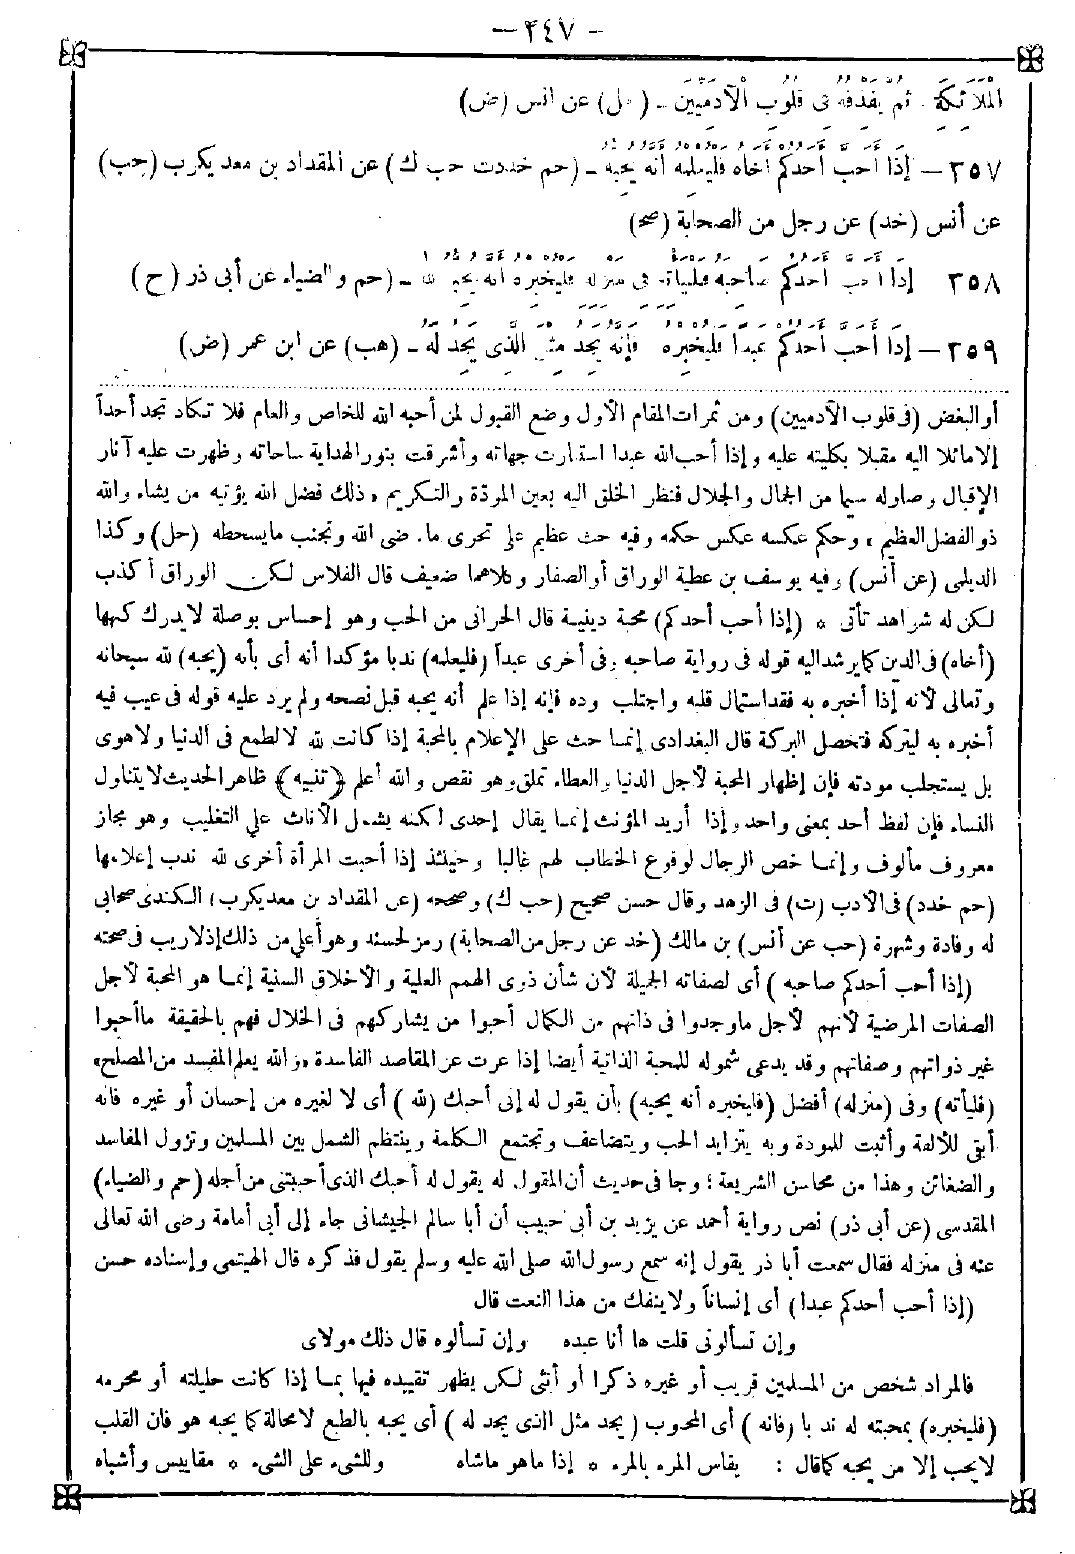 - ٢٤٧ -
الْمَلَائِكَةِ ، ثُمَّ يَقْذِفُهُ فِى قُلُوبِ الْآدَمِيِّينَ - (حل) عن انس (ض)
٣٥٧ - إِذَا أَحَبَّ أَحَدُكُمْ أَخَاهُ فَلْيُعْلِمْهُ أَنَّهُ يُحِبُّهُ - (حم خد د ت حب ك) عن المقداد بن معد يكرب (حب)
عن أنس (خد) عن رجل من الصحابة (صح)
٣٥٨ إِذَا أَحَبَّ أَحَدُكُمْ صَاحِبَهُ فَلْيَأْتِهِ فِى مَنْزِلِهِ فَلْيُخْبِرْهُ أَنَّهُ يُحِبُّهُ لِلّٰهِ - (حم والضياء عن أبى ذر (ح)
٣٥٩ - إِذَا أَحَبَّ أَحَدُكُمْ عَبْدًا فَلْيُخْبِرْهُ فَإِنَّهُ يَجِدُ مِثْلَ الَّذِى يَجِدُ لَهُ - (هب) عن ابن عمر (ض)
أو البغض (فى قلوب الآدميين) ومن ثمرات المقام الأول وضع القبول لمن أحبه الله للخاص والعام فلا تكاد تجد أحداً
إلا مائلا اليه مقبلا بكليته عليه وإذا أحب الله عبدا استنارت جهاته وأشرقت بنور الهداية ساحاته وظهرت عليه آثار
الإقبال وصار له سيما من الجمال والجلال فنظر الخلق اليه بعين المودّة والتكريم ، ذلك فضل الله يؤتيه من يشاء والله
ذو الفضل العظيم ، وحكم عكسه عكس حكمه وفيه حث عظيم على تحرى ما يرضى الله وتجنب ما يسخطه (حل) وكذا
الديلمى (عن أنس) وفيه يوسف بن عطية الوراق أو الصفار وكلاهما ضعيف قال الفلاس لكن الوراق أكذب
لكن له شواهد تأتى * (إذا أحب أحدكم) محبة دينية قال الحرانى من الحب وهو إحساس بوصلة لا يدرك كنهها
(أخاه) فى الدين كما يرشد اليه قوله فى رواية صاحبه وفى أخرى عبداً (فليعلمه) ندبا مؤكدا أنه أى بأنه (يحبه) لله سبحانه
وتعالى لأنه إذا أخبره به فقد استمال قلبه واجتلب وده فإنه إذا علم أنه يحبه قبل نصحه ولم يرد عليه قوله فى عيب فيه
أخبره به ليتركه فتحصل البركة قال البغدادى إنما حث على الإعلام بالمحبة إذا كانت لله لا لطمع فى الدنيا ولا هوى
بل يستجلب مودته فإن إظهار المحبة لأجل الدنيا والعطاء تملق وهو نقص والله أعلم ﴿تنبيه﴾ ظاهر الحديث لا يتناول
النساء فإن لفظ أحد بمعنى واحد وإذا أريد المؤنث إنما يقال إحدى لكنه يشمل الأناث على التغليب وهو مجاز
معروف مألوف وإنما خص الرجال لوقوع الخطاب لهم غالبا وحينئذ إذا أحبت المرأة أخرى لله ندب إعلامها
(حم خدد) فى الأدب (ت) فى الزهد وقال حسن صحيح (حب ك) وصححه (عن المقداد بن معد يكرب) الكندى صحابى
له وفادة وشهرة (حب عن أنس) بن مالك (خد عن رجل من الصحابة) رمز لحسنه وهو أعلى من ذلك إذ لا ريب فى صحته
(إذا أحب أحدكم صاحبه) أى لصفاته الجميلة لأن شأن ذوى الهمم العلية والأخلاق السنية إنما هو المحبة لأجل
الصفات المرضية لأنهم لأجل ما وجدوا فى ذاتهم من الكمال أحبوا من يشاركهم فى الخلال فهم بالحقيقة ما أحبوا
غير ذواتهم وصفاتهم وقد يدعى شموله للمحبة الذاتية أيضا إذا عرت عن المقاصد الفاسدة «والله يعلم المفسد من المصلح»
(فليأته) وفى (منزله) أفضل (فليخبره أنه يحبه) بأن يقول له إنى أحبك (لله) أى لا لغيره من إحسان أو غيره فانه
أبقى للألفة وأثبت للمودة وبه يتزايد الحب ويتضاعف وتجتمع الكلمة وينتظم الشمل بين المسلمين وتزول المفاسد
والضغائن وهذا من محاسن الشريعة ؛ وجا فى حديث أن المقول له يقول له أحبك الذى أحببتنى من أجله (حم والضياء)
المقدسى (عن أبى ذر) نص رواية أحمد عن يزيد بن أبى حبيب أن أبا سالم الجيشانى جاء إلى أبى أمامة رضى الله تعالى
عنه فى منزله فقال سمعت أبا ذر يقول إنه سمع رسول الله صلى الله عليه وسلم يقول فذكره قال الهيتمى وإسناده حسن
(إذا أحب أحدكم عبدا) أى إنساناً ولا ينفك من هذا النعت قال
وإن تسألونى قلت ها أنا عبده وإن تسألوه قال ذلك مولاى
فالمراد شخص من المسلمين قريب أو غيره ذكرا أو أنثى لكن يظهر تقييده فيها بما إذا كانت حليلته أو محرمه
(فليخبره) بمحبته له ندبا (فانه) أى المحبوب (يجد مثل الذى يجد له) أى يحبه بالطبع لا محالة كما يحبه هو فان القلب
لا يحب إلا من يحبه كما قال : يقاس المرء بالمرء * إذا ما هو ماشاه وللشىء على الشىء * مقاييس وأشباه